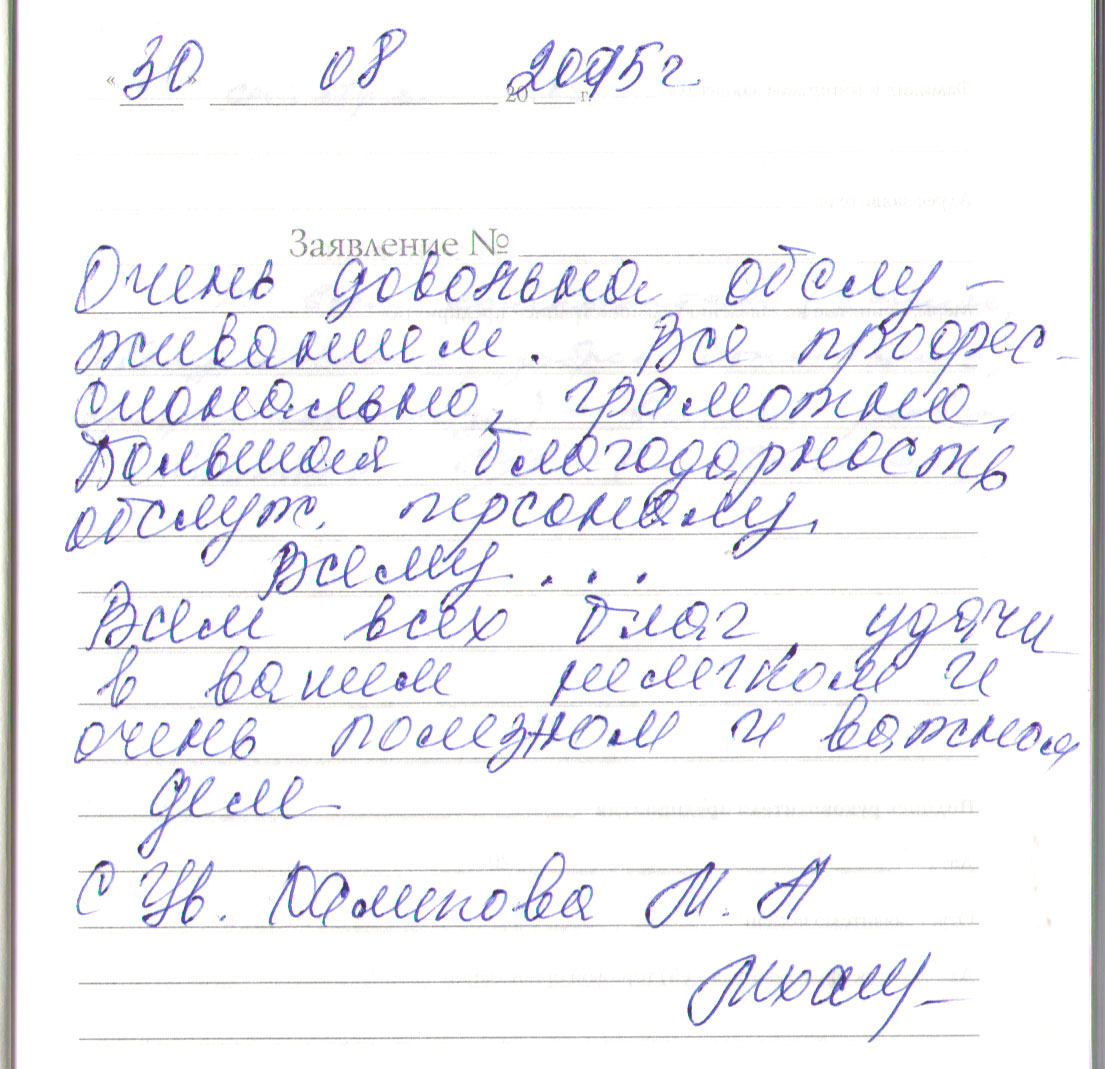 «30» 08 2015 г.
Заявление №
Очень довольна обслу-
живанием. Все профес-
сионально, грамотно,
Большая благодарность
обслуж. персоналу.
Всему...
Всем всех благ, удачи
в вашем нелегком и
очень полезном и важном
деле
С ув. М. А